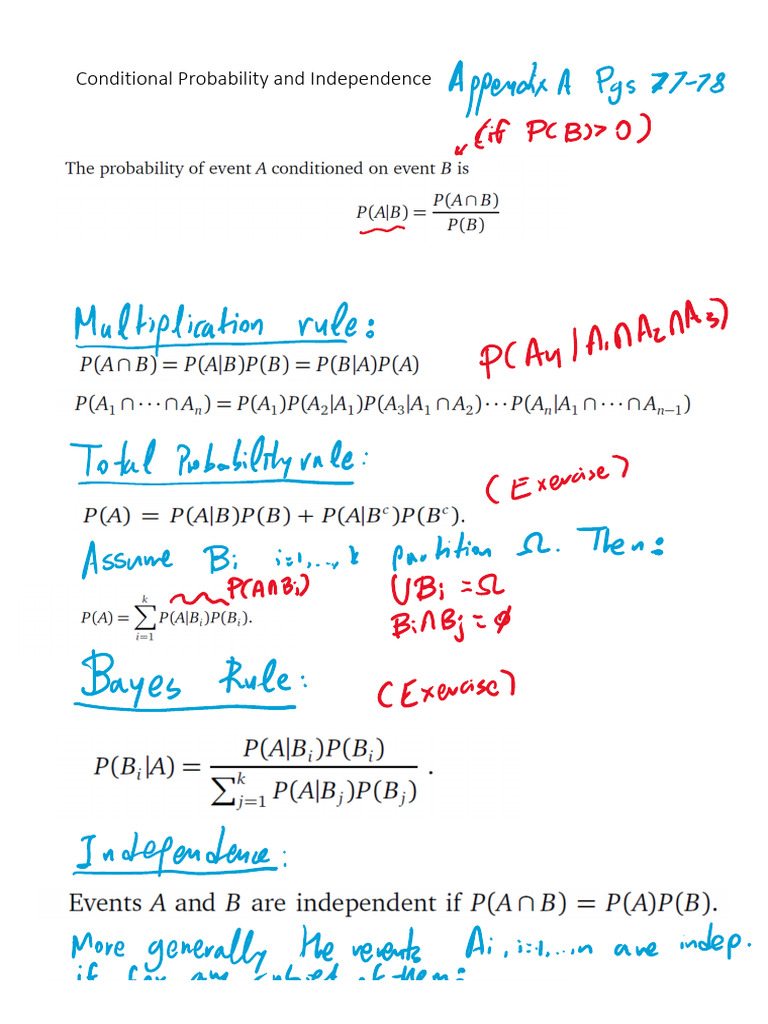 Conditional Probability and Independence Appendix A Pgs 77-78
(if P(B)>0)
The probability of event A conditioned on event B is
P(A|B) = P(A∩B) / P(B)
Multiplication rule:
P(A∩B) = P(A|B)P(B) = P(B|A)P(A)
P(A4|A1∩A2∩A3)
P(A₁∩⋯∩Aₙ) = P(A₁)P(A₂|A₁)P(A₃|A₁∩A₂)⋯P(Aₙ|A₁∩⋯∩Aₙ₋₁)
Total Probability rule:
(Exercise)
P(A) = P(A|B)P(B) + P(A|Bᶜ)P(Bᶜ).
Assume Bi i=1,..,k partition Ω. Then:
P(A∩Bi) ∪Bi = Ω
P(A) = ∑ᵢ₌₁ᵏ P(A|Bᵢ)P(Bᵢ). Bi∩Bj = ∅
Bayes Rule: (Exercise)
P(Bᵢ|A) = P(A|Bᵢ)P(Bᵢ) / ∑ⱼ₌₁ᵏ P(A|Bⱼ)P(Bⱼ) .
Independence:
Events A and B are independent if P(A∩B) = P(A)P(B).
More generally the events Ai, i=1,...,n are indep.
if for any subset of them: